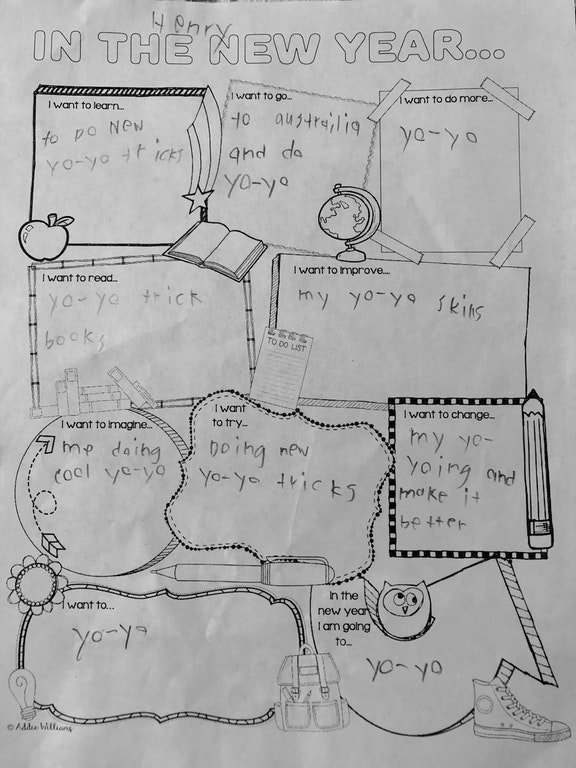 Henry
IN THE NEW YEAR...
I want to learn...
to do new
yo-yo tricks
I want to go...
to austrailia
and do
yo-yo
I want to do more...
yo-yo
I want to read...
yo-yo trick
books
I want to improve...
my yo-yo skils
TO DO LIST
I want to imagine...
me doing
cool yo-yo
I want
to try...
Doing new
yo-yo tricks
I want to change...
my yo-
yoing and
make it
better
I want to...
yo-yo
In the
new year
I am going
to...
yo-yo
© Addie Williams